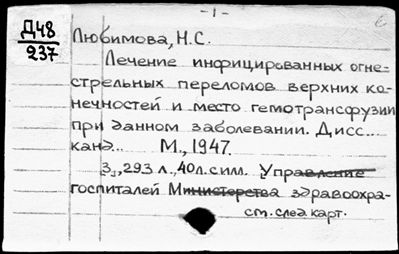 - 1 -
Д48
237
Любимова, Н.С.
Лечение инфицированных огне-
стрельных переломов верхних ко-
нечностей и место гемотрансфузии
при данном заболевании. Дисс...
канд... М., 1947.
3, 293 л., 40 л. илл. [Управление
госпиталей Министерства здравоохра-
см. след карт.